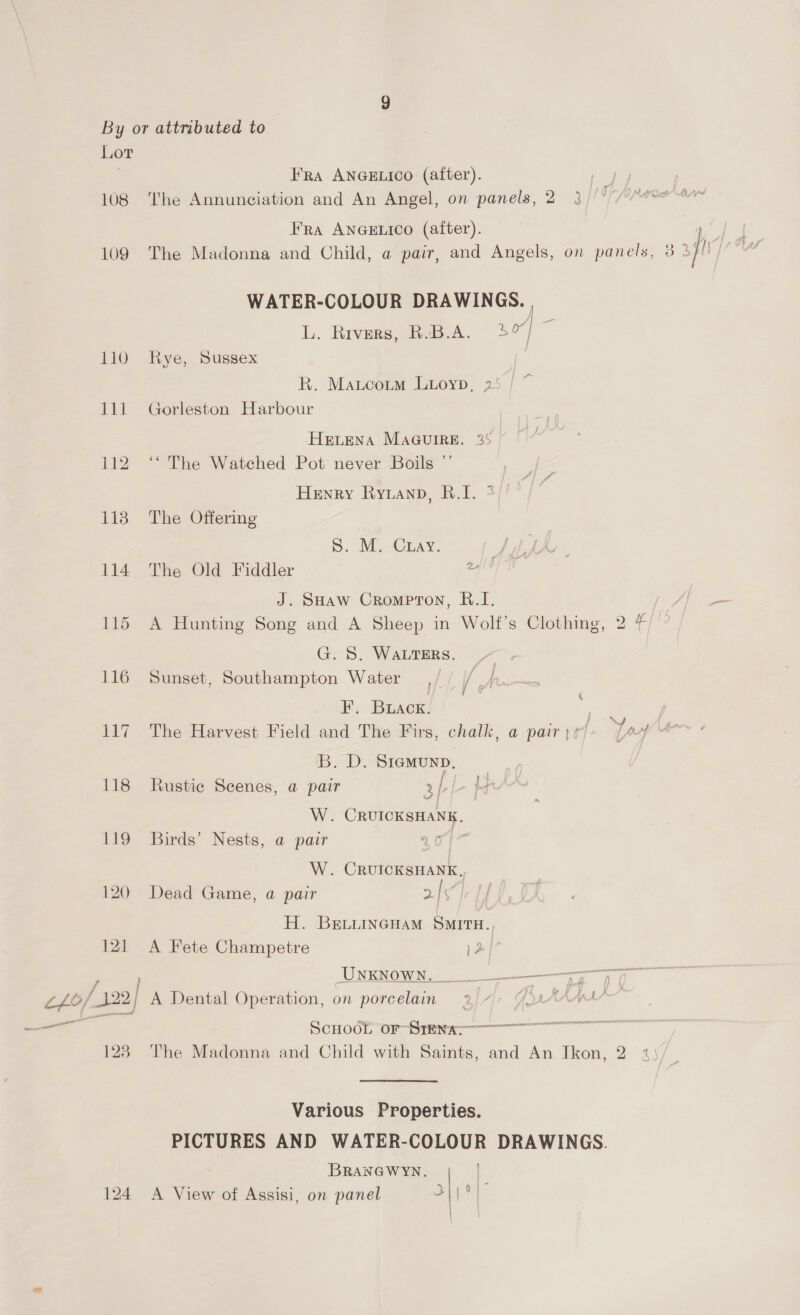 9
By or attributed to
Lot
Fra Angelico (after).
108 The Annunciation and An Angel, on panels, 2
Fra Angelico (after).
109 The Madonna and Child, a pair, and Angels, on panels, 3
WATER-COLOUR DRAWINGS.
L. Rivers, R.B.A. 30/-
110 Rye, Sussex
R. Malcolm Lloyd, 25/-
111 Gorleston Harbour
Helena Maguire. 35
112 “ The Watched Pot never Boils ”
Henry Ryland, R.I.
113 The Offering
S. M. Clay.
114 The Old Fiddler
J. Shaw Crompton, R.I.
115 A Hunting Song and A Sheep in Wolf’s Clothing, 2
G. S. Walters.
116 Sunset, Southampton Water
F. Black.
117 The Harvest Field and The Firs, chalk, a pair
B. D. Sigmund,
118 Rustic Scenes, a pair
W. Cruickshank.
119 Birds’ Nests, a pair
W. Cruickshank.,
120 Dead Game, a pair
H. Bellingham Smith.,
121 A Fete Champetre 12/-
Unknown.
122 A Dental Operation, on porcelain
School of Siena.
123 The Madonna and Child with Saints, and An Ikon, 2
Various Properties.
PICTURES AND WATER-COLOUR DRAWINGS.
Brangwyn.
124 A View of Assisi, on panel